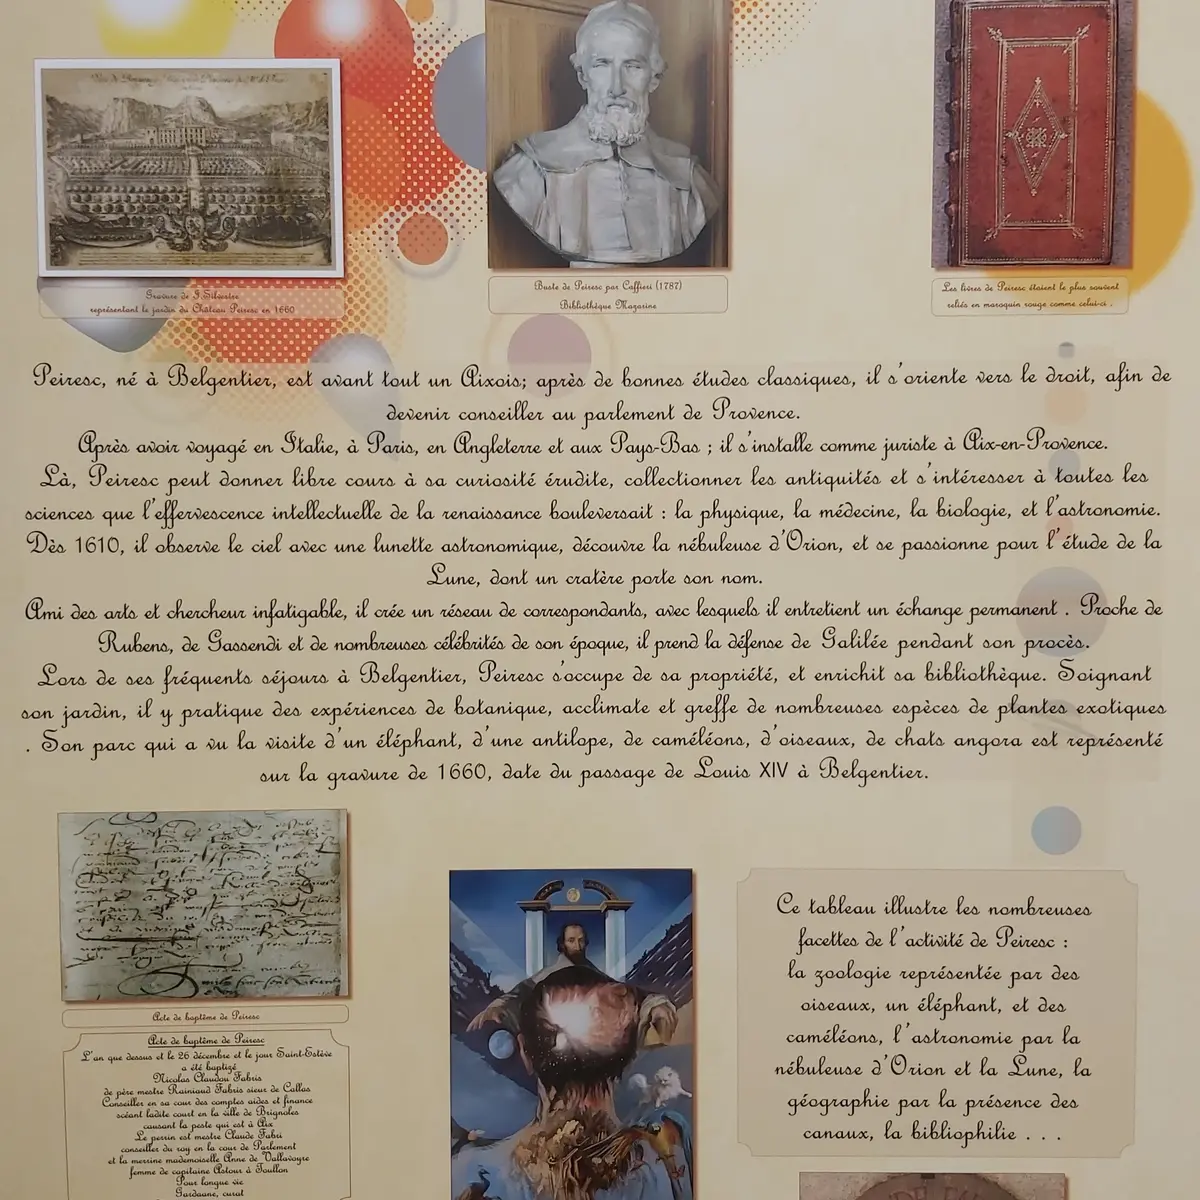 Gravure de J.Silvestre
représentant le jardin du Château Peiresc en 1660
Buste de Peiresc par Caffieri (1787)
Bibliothèque Mazarine
Les livres de Peiresc étaient le plus souvent
reliés en maroquin rouge comme celui-ci .
Peiresc, né à Belgentier, est avant tout un Aixois; après de bonnes études classiques, il s'oriente vers le droit, afin de
devenir conseiller au parlement de Provence.
Après avoir voyagé en Italie, à Paris, en Angleterre et aux Pays-Bas ; il s'installe comme juriste à Aix-en-Provence.
Là, Peiresc peut donner libre cours à sa curiosité érudite, collectionner les antiquités et s'intéresser à toutes les
sciences que l'effervescence intellectuelle de la renaissance bouleversait : la physique, la médecine, la biologie, et l'astronomie.
Dès 1610, il observe le ciel avec une lunette astronomique, découvre la nébuleuse d'Orion, et se passionne pour l'étude de la
Lune, dont un cratère porte son nom.
Ami des arts et chercheur infatigable, il crée un réseau de correspondants, avec lesquels il entretient un échange permanent . Proche de
Rubens, de Gassendi et de nombreuses célébrités de son époque, il prend la défense de Galilée pendant son procès.
Lors de ses fréquents séjours à Belgentier, Peiresc s'occupe de sa propriété, et enrichit sa bibliothèque. Soignant
son jardin, il y pratique des expériences de botanique, acclimate et greffe de nombreuses espèces de plantes exotiques
. Son parc qui a vu la visite d'un éléphant, d'une antilope, de caméléons, d'oiseaux, de chats angora est représenté
sur la gravure de 1660, date du passage de Louis XIV à Belgentier.
Acte de baptême de Peiresc
Acte de baptême de Peiresc
L'an que dessus et le 26 décembre et le jour Saint-Estève
a été baptizé
Nicolas Claudou Fabris
de père mestre Rainiaud Fabris sieur de Callas
Conseiller en sa cour des comptes aides et finance
scéant ladite court en la ville de Brignoles
causant la peste qui est à Aix
Le perrin est mestre Claude Fabri
conseiller du roy en la cour de Parlement
et la merrine mademoiselle Anne de Vallavoyre
femme de capitaine Astour à Toullon
Pour longue vie
Gardaane, curat
Ce tableau illustre les nombreuses
facettes de l'activité de Peiresc :
la zoologie représentée par des
oiseaux, un éléphant, et des
caméléons, l'astronomie par la
nébuleuse d'Orion et la Lune, la
géographie par la présence des
canaux, la bibliophilie . . .